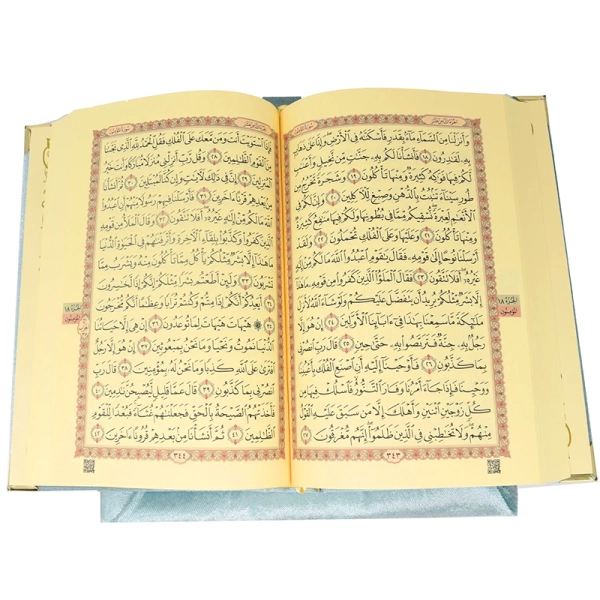 وَأَنزَلْنَا مِنَ ٱلسَّمَآءِ مَآءًۢ بِقَدَرٍ فَأَسْكَنَّٰهُ فِى ٱلْأَرْضِ وَإِنَّا عَلَىٰ ذَهَابٍۭ
بِهِۦ لَقَٰدِرُونَ ١٨ فَأَنشَأْنَا لَكُم بِهِۦ جَنَّٰتٍ مِّن نَّخِيلٍ وَأَعْنَٰبٍ
لَّكُمْ فِيهَا فَوَٰكِهُ كَثِيرَةٌ وَمِنْهَا تَأْكُلُونَ ١٩ وَشَجَرَةً تَخْرُجُ مِن
طُورِ سَيْنَآءَ تَنۢبُتُ بِٱلدُّهْنِ وَصِبْغٍ لِّلْءَاكِلِينَ ٢٠ وَإِنَّ لَكُمْ فِى
ٱلْأَنْعَٰمِ لَعِبْرَةً نُّسْقِيكُم مِّمَّا فِى بُطُونِهَا وَلَكُمْ فِيهَا مَنَٰفِعُ كَثِيرَةٌ
وَمِنْهَا تَأْكُلُونَ ٢١ وَعَلَيْهَا وَعَلَى ٱلْفُلْكِ تُحْمَلُونَ ٢٢ وَلَقَدْ
أَرْسَلْنَا نُوحًا إِلَىٰ قَوْمِهِۦ فَقَالَ يَٰقَوْمِ ٱعْبُدُوا۟ ٱللَّهَ مَا لَكُم مِّنْ إِلَٰهٍ
غَيْرُهُۥٓ أَفَلَا تَتَّقُونَ ٢٣ فَقَالَ ٱلْمَلَؤُا۟ ٱلَّذِينَ كَفَرُوا۟ مِن قَوْمِهِۦ مَا هَٰذَآ
إِلَّا بَشَرٌ مِّثْلُكُمْ يُرِيدُ أَن يَتَفَضَّلَ عَلَيْكُمْ وَلَوْ شَآءَ ٱللَّهُ لَأَنزَلَ
مَلَٰٓئِكَةً مَّا سَمِعْنَا بِهَٰذَا فِىٓ ءَابَآئِنَا ٱلْأَوَّلِينَ ٢٤ إِنْ هُوَ إِلَّا
رَجُلٌۢ بِهِۦ جِنَّةٌ فَتَرَبَّصُوا۟ بِهِۦ حَتَّىٰ حِينٍ ٢٥ قَالَ رَبِّ ٱنصُرْنِى
بِمَا كَذَّبُونِ ٢٦ فَأَوْحَيْنَآ إِلَيْهِ أَنِ ٱصْنَعِ ٱلْفُلْكَ بِأَعْيُنِنَا
وَوَحْيِنَا فَإِذَا جَآءَ أَمْرُنَا وَفَارَ ٱلتَّنُّورُ فَٱسْلُكْ فِيهَا مِن
كُلٍّ زَوْجَيْنِ ٱثْنَيْنِ وَأَهْلَكَ إِلَّا مَن سَبَقَ عَلَيْهِ ٱلْقَوْلُ
مِنْهُمْ وَلَا تُخَٰطِبْنِى فِى ٱلَّذِينَ ظَلَمُوٓا۟ إِنَّهُم مُّغْرَقُونَ ٢٧
٣٤٣
الجزء ١٨
المؤمنون
فَإِذَا ٱسْتَوَيْتَ أَنتَ وَمَن مَّعَكَ عَلَى ٱلْفُلْكِ فَقُلِ ٱلْحَمْدُ لِلَّهِ ٱلَّذِى نَجَّىٰنَا
مِنَ ٱلْقَوْمِ ٱلظَّٰلِمِينَ ٢٨ وَقُل رَّبِّ أَنزِلْنِى مُنزَلًا مُّبَارَكًا وَأَنتَ خَيْرُ
ٱلْمُنزِلِينَ ٢٩ إِنَّ فِى ذَٰلِكَ لَءَايَٰتٍ وَإِن كُنَّا لَمُبْتَلِينَ ٣٠ ثُمَّ أَنشَأْنَا
مِنۢ بَعْدِهِمْ قَرْنًا ءَاخَرِينَ ٣١ فَأَرْسَلْنَا فِيهِمْ رَسُولًا مِّنْهُمْ أَنِ ٱعْبُدُوا۟
ٱللَّهَ مَا لَكُم مِّنْ إِلَٰهٍ غَيْرُهُۥٓ أَفَلَا تَتَّقُونَ ٣٢ وَقَالَ ٱلْمَلَأُ مِن قَوْمِهِ
ٱلَّذِينَ كَفَرُوا۟ وَكَذَّبُوا۟ بِلِقَآءِ ٱلْءَاخِرَةِ وَأَتْرَفْنَٰهُمْ فِى ٱلْحَيَوٰةِ ٱلدُّنْيَا
مَا هَٰذَآ إِلَّا بَشَرٌ مِّثْلُكُمْ يَأْكُلُ مِمَّا تَأْكُلُونَ مِنْهُ وَيَشْرَبُ مِمَّا
تَشْرَبُونَ ٣٣ وَلَئِنْ أَطَعْتُم بَشَرًا مِّثْلَكُمْ إِنَّكُمْ إِذًا لَّخَٰسِرُونَ
٣٤ أَيَعِدُكُمْ أَنَّكُمْ إِذَا مِتُّمْ وَكُنتُمْ تُرَابًا وَعِظَٰمًا أَنَّكُم مُّخْرَجُونَ
٣٥ ۞ هَيْهَاتَ هَيْهَاتَ لِمَا تُوعَدُونَ ٣٦ إِنْ هِىَ إِلَّا حَيَاتُنَا
ٱلدُّنْيَا نَمُوتُ وَنَحْيَا وَمَا نَحْنُ بِمَبْعُوثِينَ ٣٧ إِنْ هُوَ إِلَّا رَجُلٌ
ٱفْتَرَىٰ عَلَى ٱللَّهِ كَذِبًا وَمَا نَحْنُ لَهُۥ بِمُؤْمِنِينَ ٣٨ قَالَ رَبِّ
ٱنصُرْنِى بِمَا كَذَّبُونِ ٣٩ قَالَ عَمَّا قَلِيلٍ لَّيُصْبِحُنَّ نَٰدِمِينَ ٤٠
فَأَخَذَتْهُمُ ٱلصَّيْحَةُ بِٱلْحَقِّ فَجَعَلْنَٰهُمْ غُثَآءً فَبُعْدًا لِّلْقَوْمِ
ٱلظَّٰلِمِينَ ٤١ ثُمَّ أَنشَأْنَا مِنۢ بَعْدِهِمْ قُرُونًا ءَاخَرِينَ ٤٢
٣٤٤
الجزء ١٨
المؤمنون